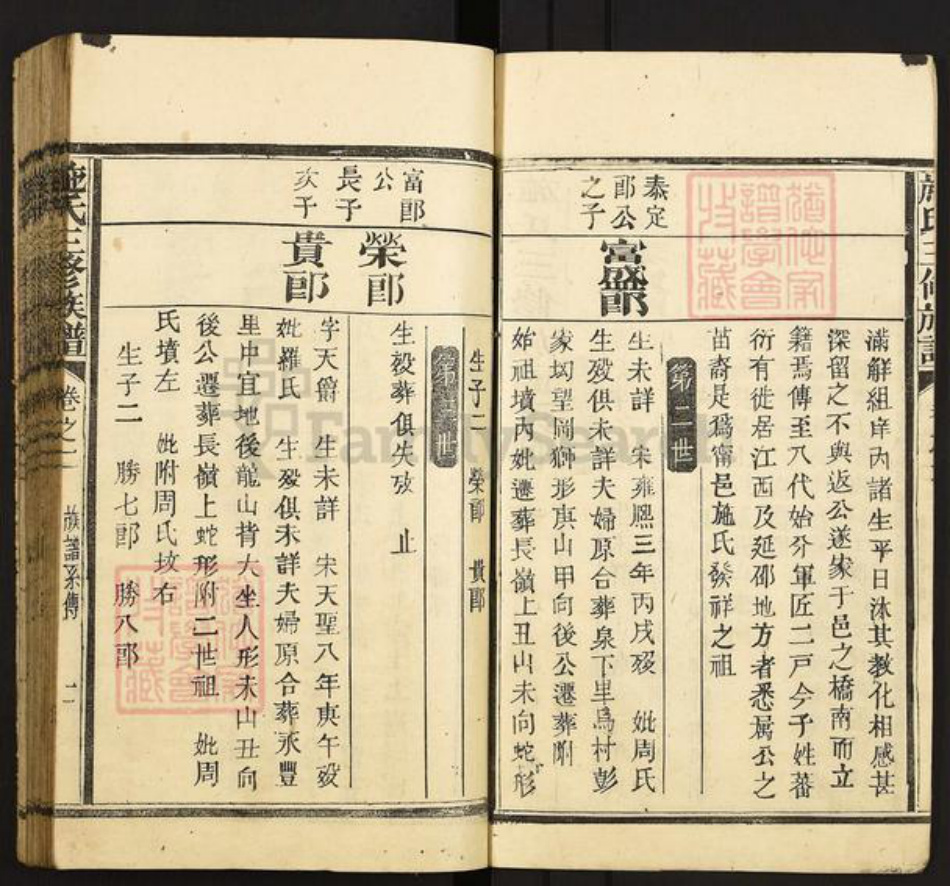 施氏三修族譜
滿解組庠內諸生平日沐其教化相感甚
深留之不與返公遂家于邑之橋南而立
籍焉傳至八代始分軍匠二戶今子姓蕃
衍有徙居江西及延邵地方者悉屬公之
苗裔是爲甯邑施氏發祥之祖
第二世
泰定
郎公
之子
富盛郎
生未詳 宋雍熙三年丙戌歿 妣周氏
生歿俱未詳夫婦原合葬泉下里烏村彭
家坳望岡獅形庚山甲向後公遷葬附
始祖墳內妣遷葬長嶺上丑山未向蛇形
生子二 榮郎 貴郎
第三世
富郎
公
長子
次子
榮郎
生歿葬俱失攷 止
貴郎
字天爵 生未詳 宋天聖八年庚午歿
妣羅氏 生歿俱未詳夫婦原合葬永豐
里中宜地後龍山背大坐人形未山丑向
後公遷葬長嶺上蛇形附二世祖 妣周
氏墳左 妣附周氏坟右
生子二 勝七郎 勝八郎
施氏三修族譜 卷之一 族譜系傳 二
FamilySearch